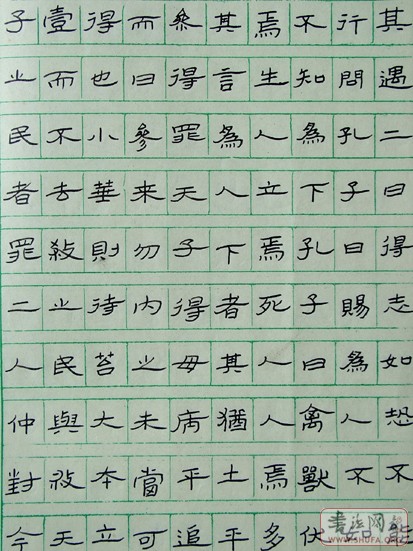 其遇二曰得志如恐不
行問孔子曰賜為人不
不知為下孔子曰禽獸伏
焉生人立焉死人人焉多
其言為人下者其猶土平
參得罪天子得毋病平追
而曰參来勿内之未當可
得也小華則待苔大本立
壹而不去殺之民與殺天
子之民者罪二人仲對今
书法网
SHUFA.COM